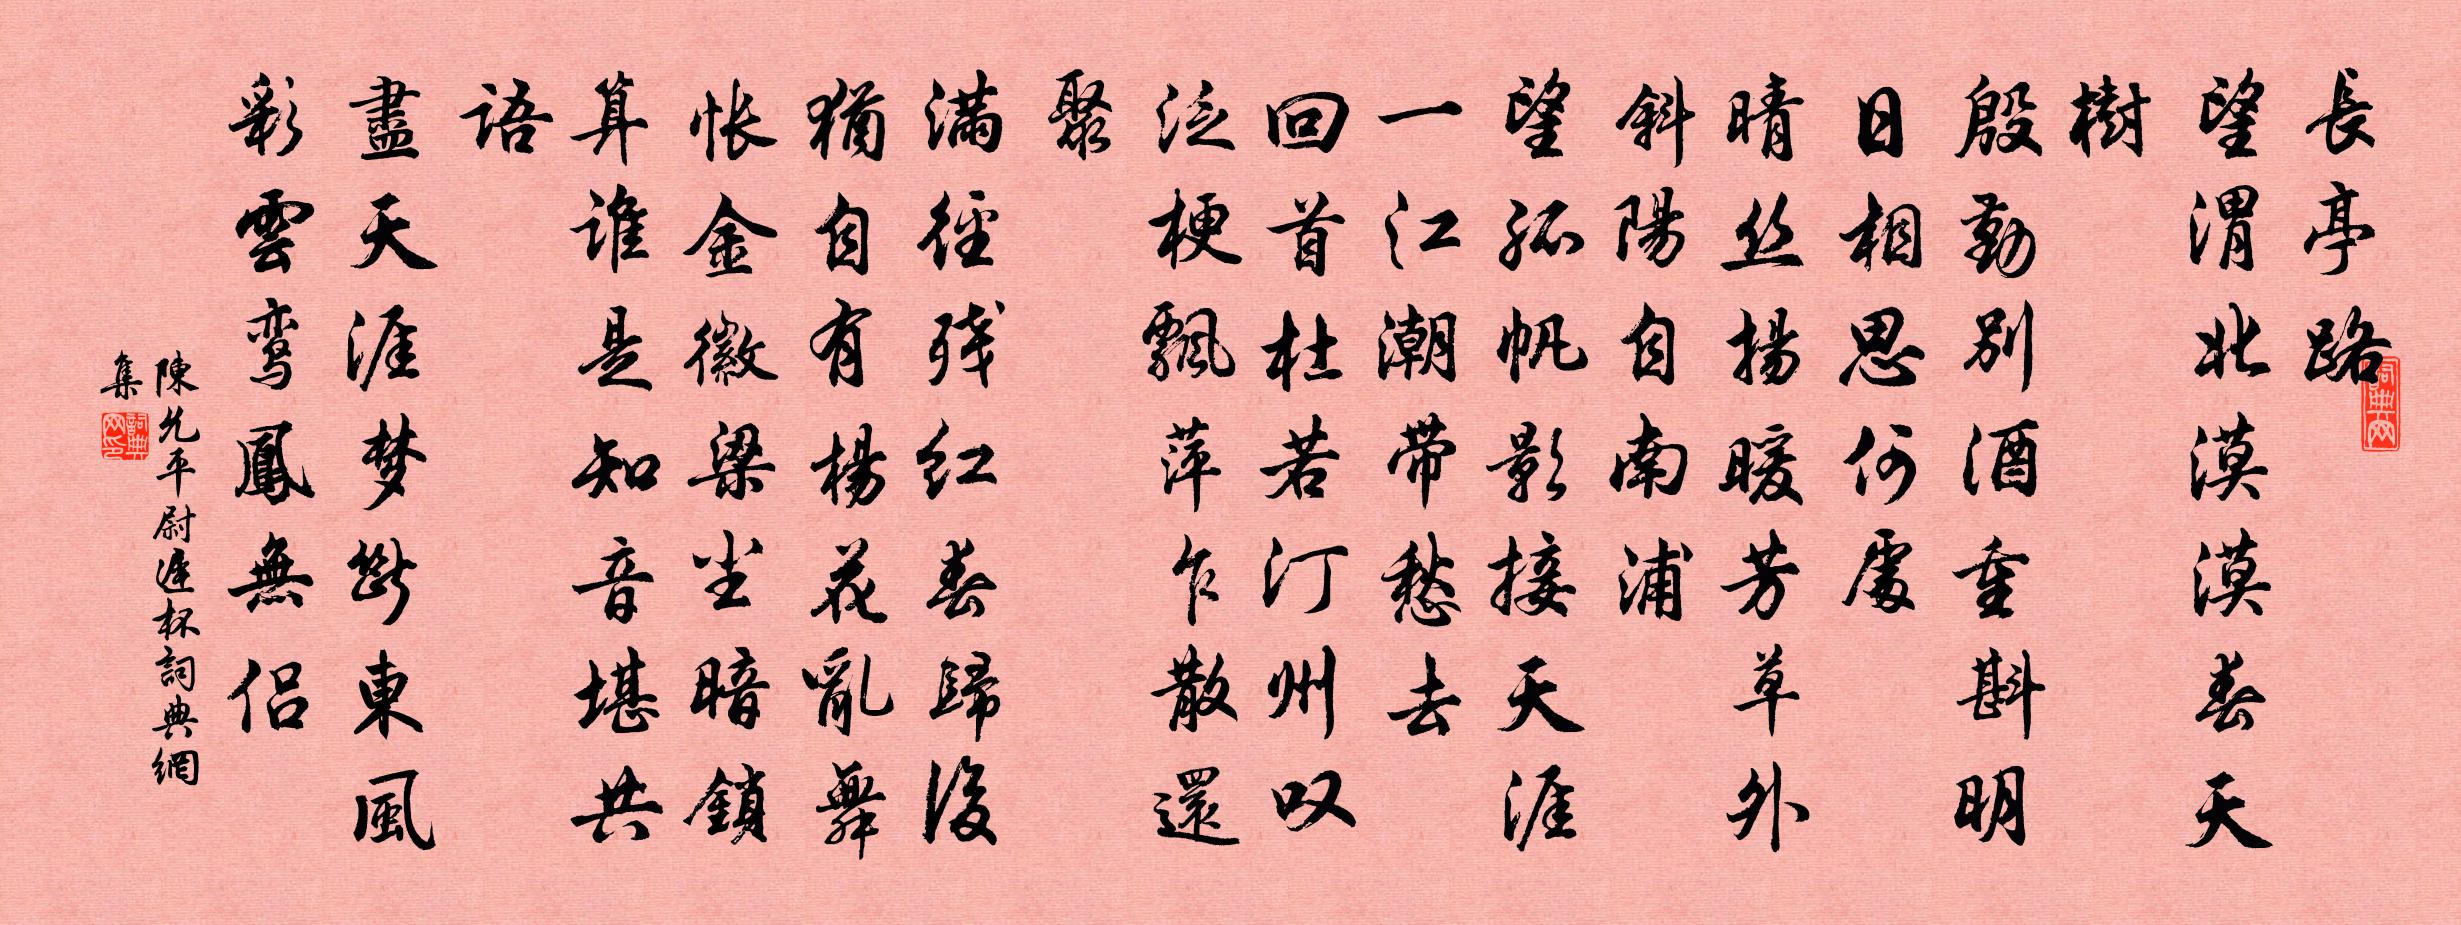 長亭路
望渭北漠漠春天
樹
殷勤别酒重斟明
日相思何處
晴丝揚暖芳草外
斜陽自南浦
望孤帆影接天涯
一江潮带愁去
回首杜若汀州叹
泛梗飄萍乍散還
聚
满徑残红春歸後
猶自有楊花亂舞
怅金徽梁尘暗鎖
算谁是知音堪共
语
盡天涯梦斷東風
彩雲鸾鳳無侣
陳允平尉遲杯詞典網
集
詞典网
詞典网印